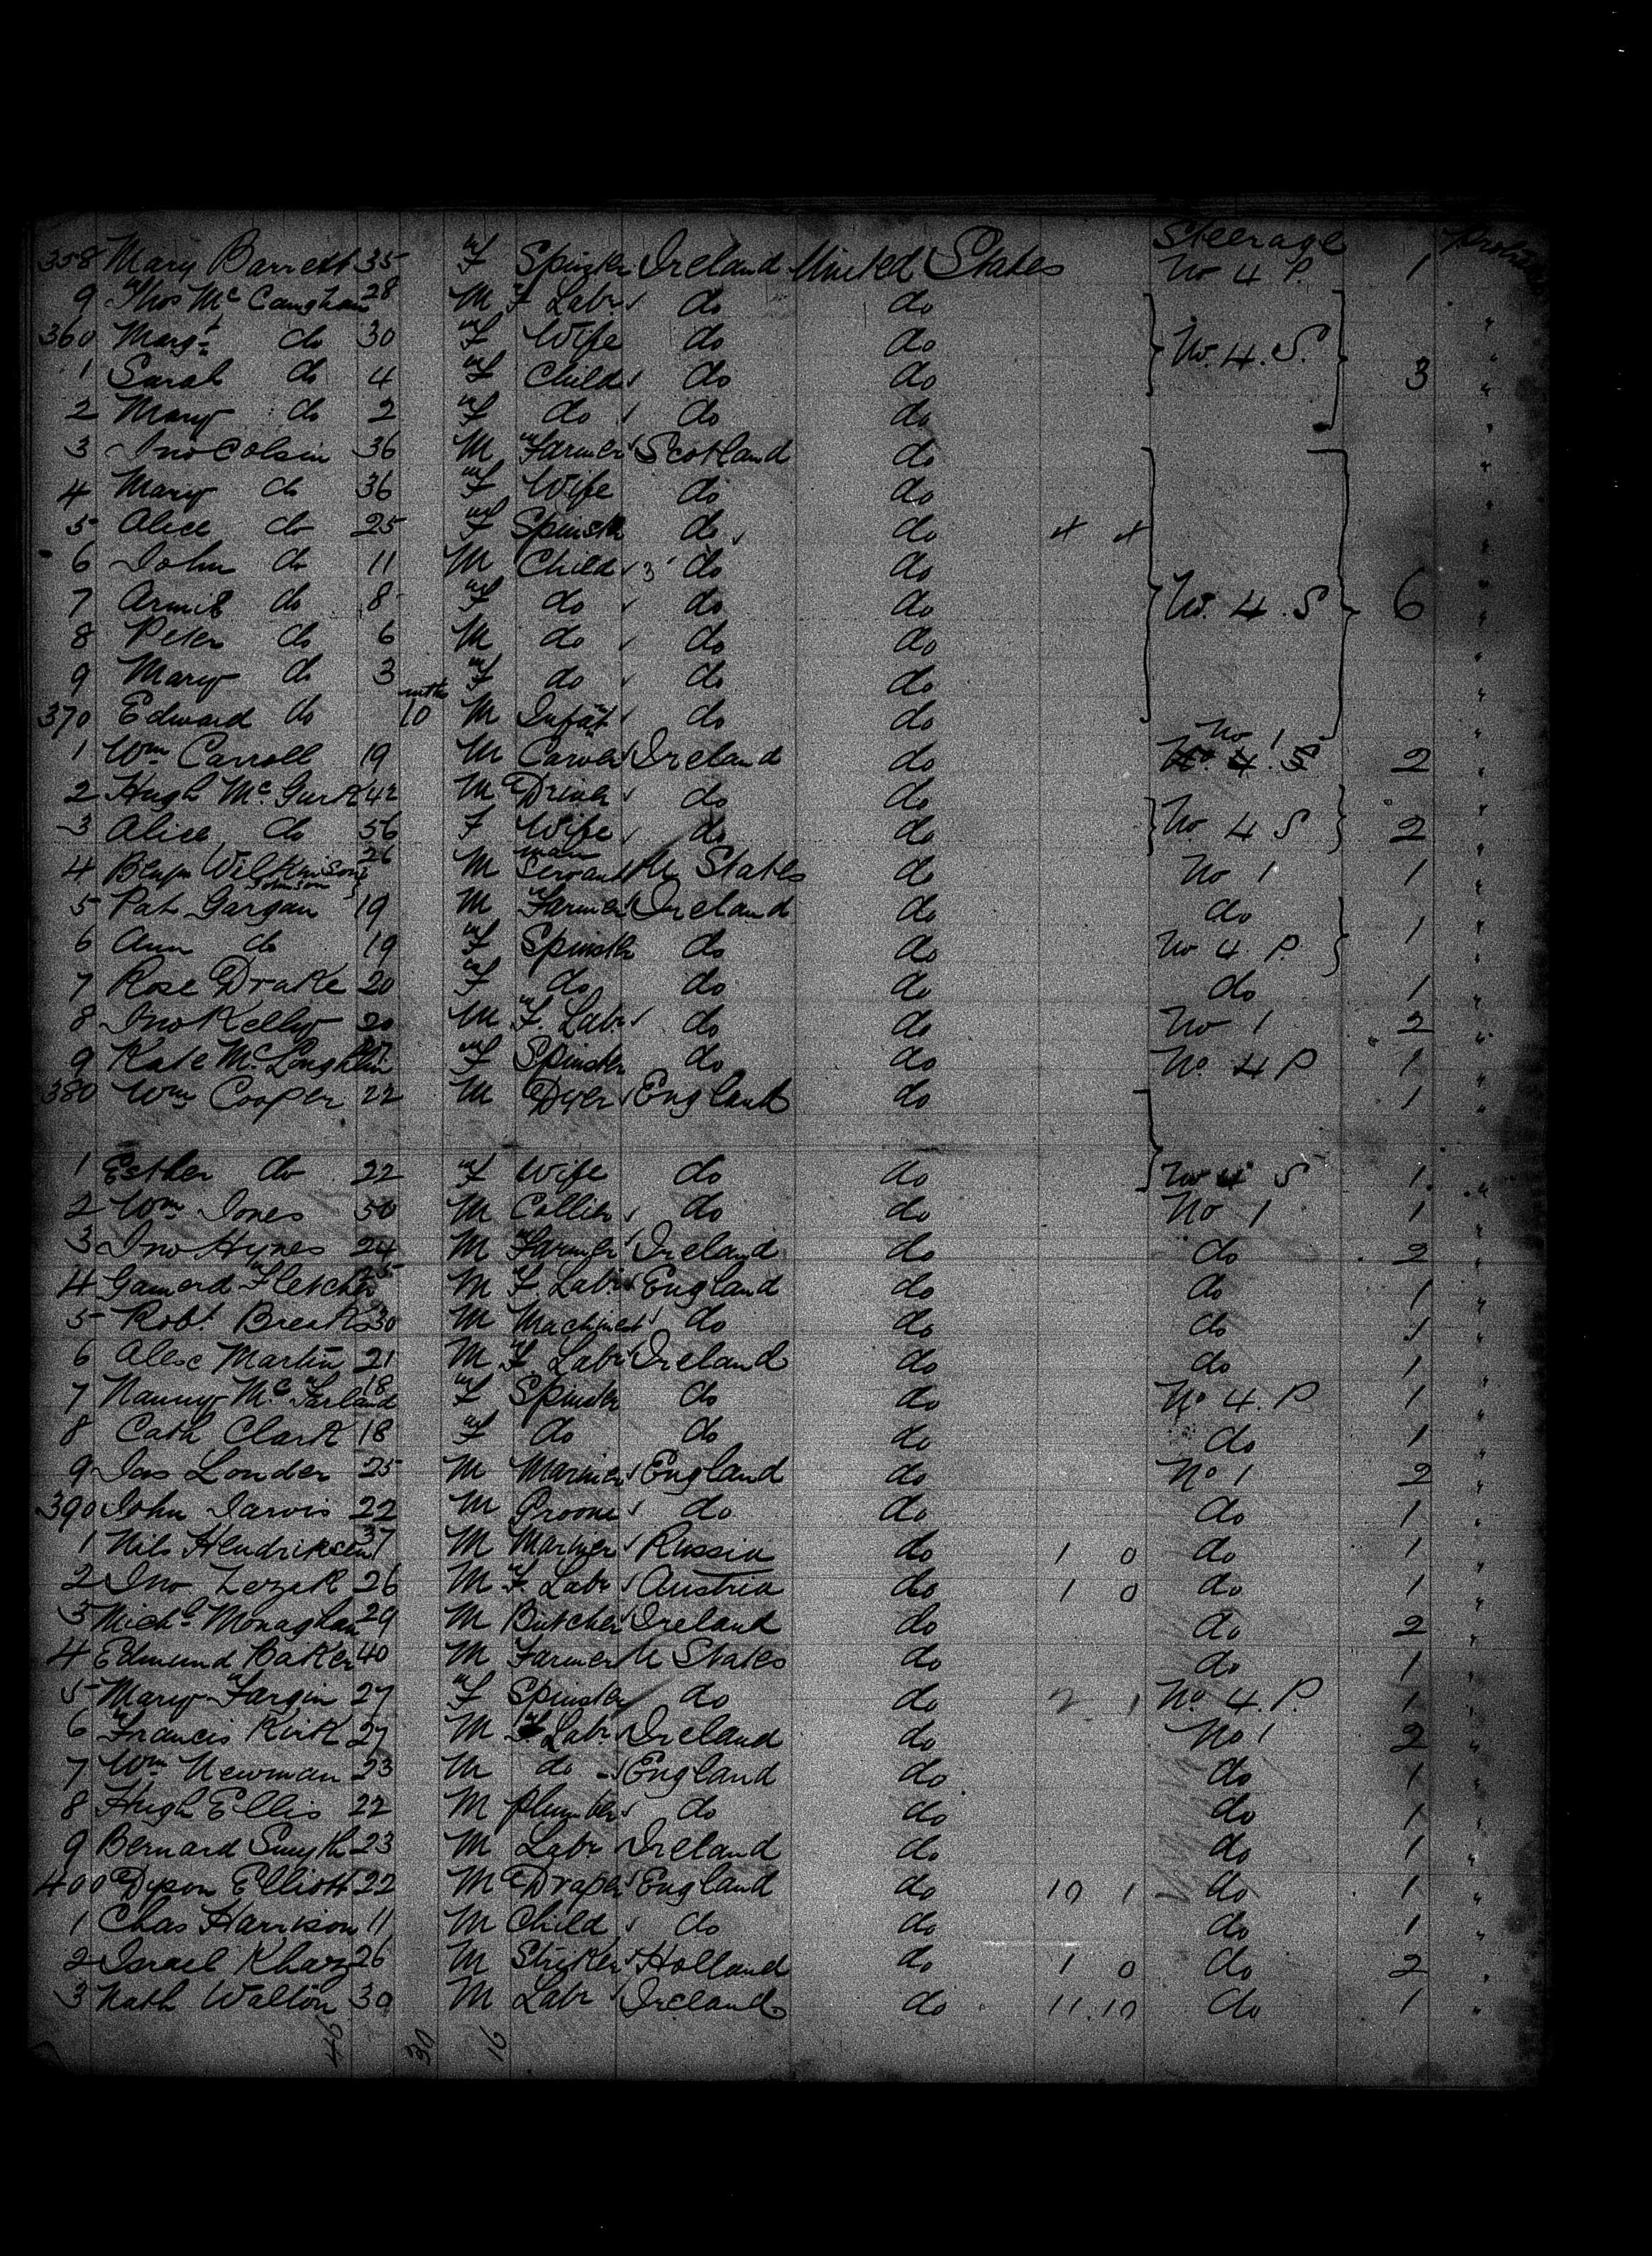 Steerage
358 Mary Barrett 35 F Spinster Ireland United States No 4 P. 1
9 Thos Mc Caughan 28 M F Labr do do
360 Margt do 30 F Wife do do No. 4. S.
1 Sarah do 4 F Child do do 3
2 Mary do 2 F do do do
3 Jno Colsin 36 M Farmer Scotland do
4 Mary do 36 F Wife do do
5 Alice do 25 F Spinstr do do
6 John do 11 M Child 3 do do
7 do 8 F do do do No. 4. S 6
8 Peter do 6 M do do do
9 Mary do 3 F do do do
370 Edward do mths 10 M Infat do do
1 Wm Carroll 19 M Carver Ireland do No 1 No. 4. S 2
2 Hugh Mc Gurk 42 M do do
3 Alice do 56 F Wife do do No 4 S 2
4 Benjn Wilkinson Johnson 26 M man Servant U States do No 1 1
5 Pat Gargan 19 M Farmer Ireland do do
6 Ann do 19 F Spinstr do do No 4. P. 1
7 Rose Drake 20 F do do do do 1
8 Jno Kelly 20 M F. Labr do do No 1 2
9 Kate Mc Loughlin F Spinster do do No 4 P 1
380 Wm Cooper 22 M Dyer England do 1
1 Esther do 22 F Wife do do No 4 S 1
2 Wm Jones 50 M Collier do do No 1 1
3 Jno Hynes 24 M Farmer Ireland do do 2
4 Fletcher 25 M F. Labr England do do 1
5 Robt Breaks 30 M Machinest do do do 1
6 Alex Martin 21 M F. Labr Ireland do do 1
7 Nanny Mc Farland 18 F Spinstr do do No 4. P 1
8 Cath Clark 18 F do do do do 1
9 Jas Londer 25 M Mariner England do No 1 2
390 John Jarvis 22 M Groom do do do 1
1 Nils Hendriksen 37 M Mariner Russia do 1 0 do 1
2 Jno Lezek 26 M F. Labr Austria do 1 0 do 1
3 Michl Monaghan 29 M Butcher Ireland do do 2
4 Edmund Baker 40 M Farmer U States do do 1
5 Mary Fargin 27 F Spinster do do 2 1 No 4. P. 1
6 Francis Kirk 27 M F Labr Ireland do No 1 2
7 Wm Newman 23 M do England do do 1
8 Hugh Ellis 22 M Plumber do do do 1
9 Bernard Smyth 23 M Labr Ireland do do 1
400 Dyson Elliott 22 M Draper England do 10 1 do 1
1 Chas Harrison 11 M Child do do do 1
2 Israel Kharz 26 M Striker Holland do 1 0 do 2
3 Nath Walton 30 M Labr Ireland do 11.10 do 1
46 30 16